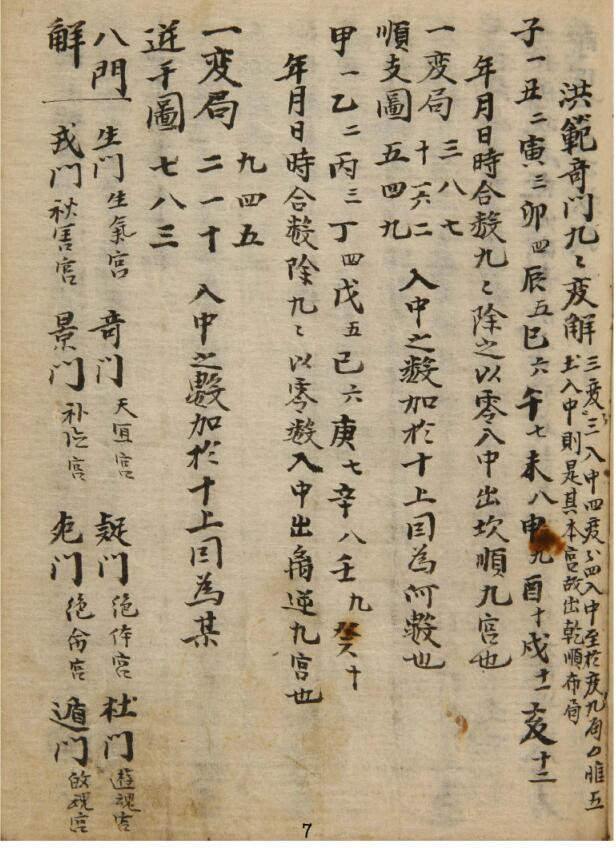 洪範奇門九〻変解
三变〻三入中四变〻四入中至於变九局〻惟五
土入中則是其本宮故出乾順布局
子一丑二寅三卯四辰五巳六午七未八申九酉十戌十一亥十二
年月日時合数九〻除之以零入中出坎順九宮也
一变局 三八七
順支圖 十六二
五四九
入中之数加於十上因為何数也
甲一乙二丙三丁四戊五己六庚七辛八壬九癸十
年月日時合数除九〻以零数入中出离逆九宮也
一变局 九四五
逆干圖 二一十
七八三
入中之數加於十上因為某
八門 生门生氣宮 奇门天宜宮 疑门絶体宮 杜门遊魂宮
解 戎门 秋害宮 景门 宮 死门絶命宮 遁门 宮